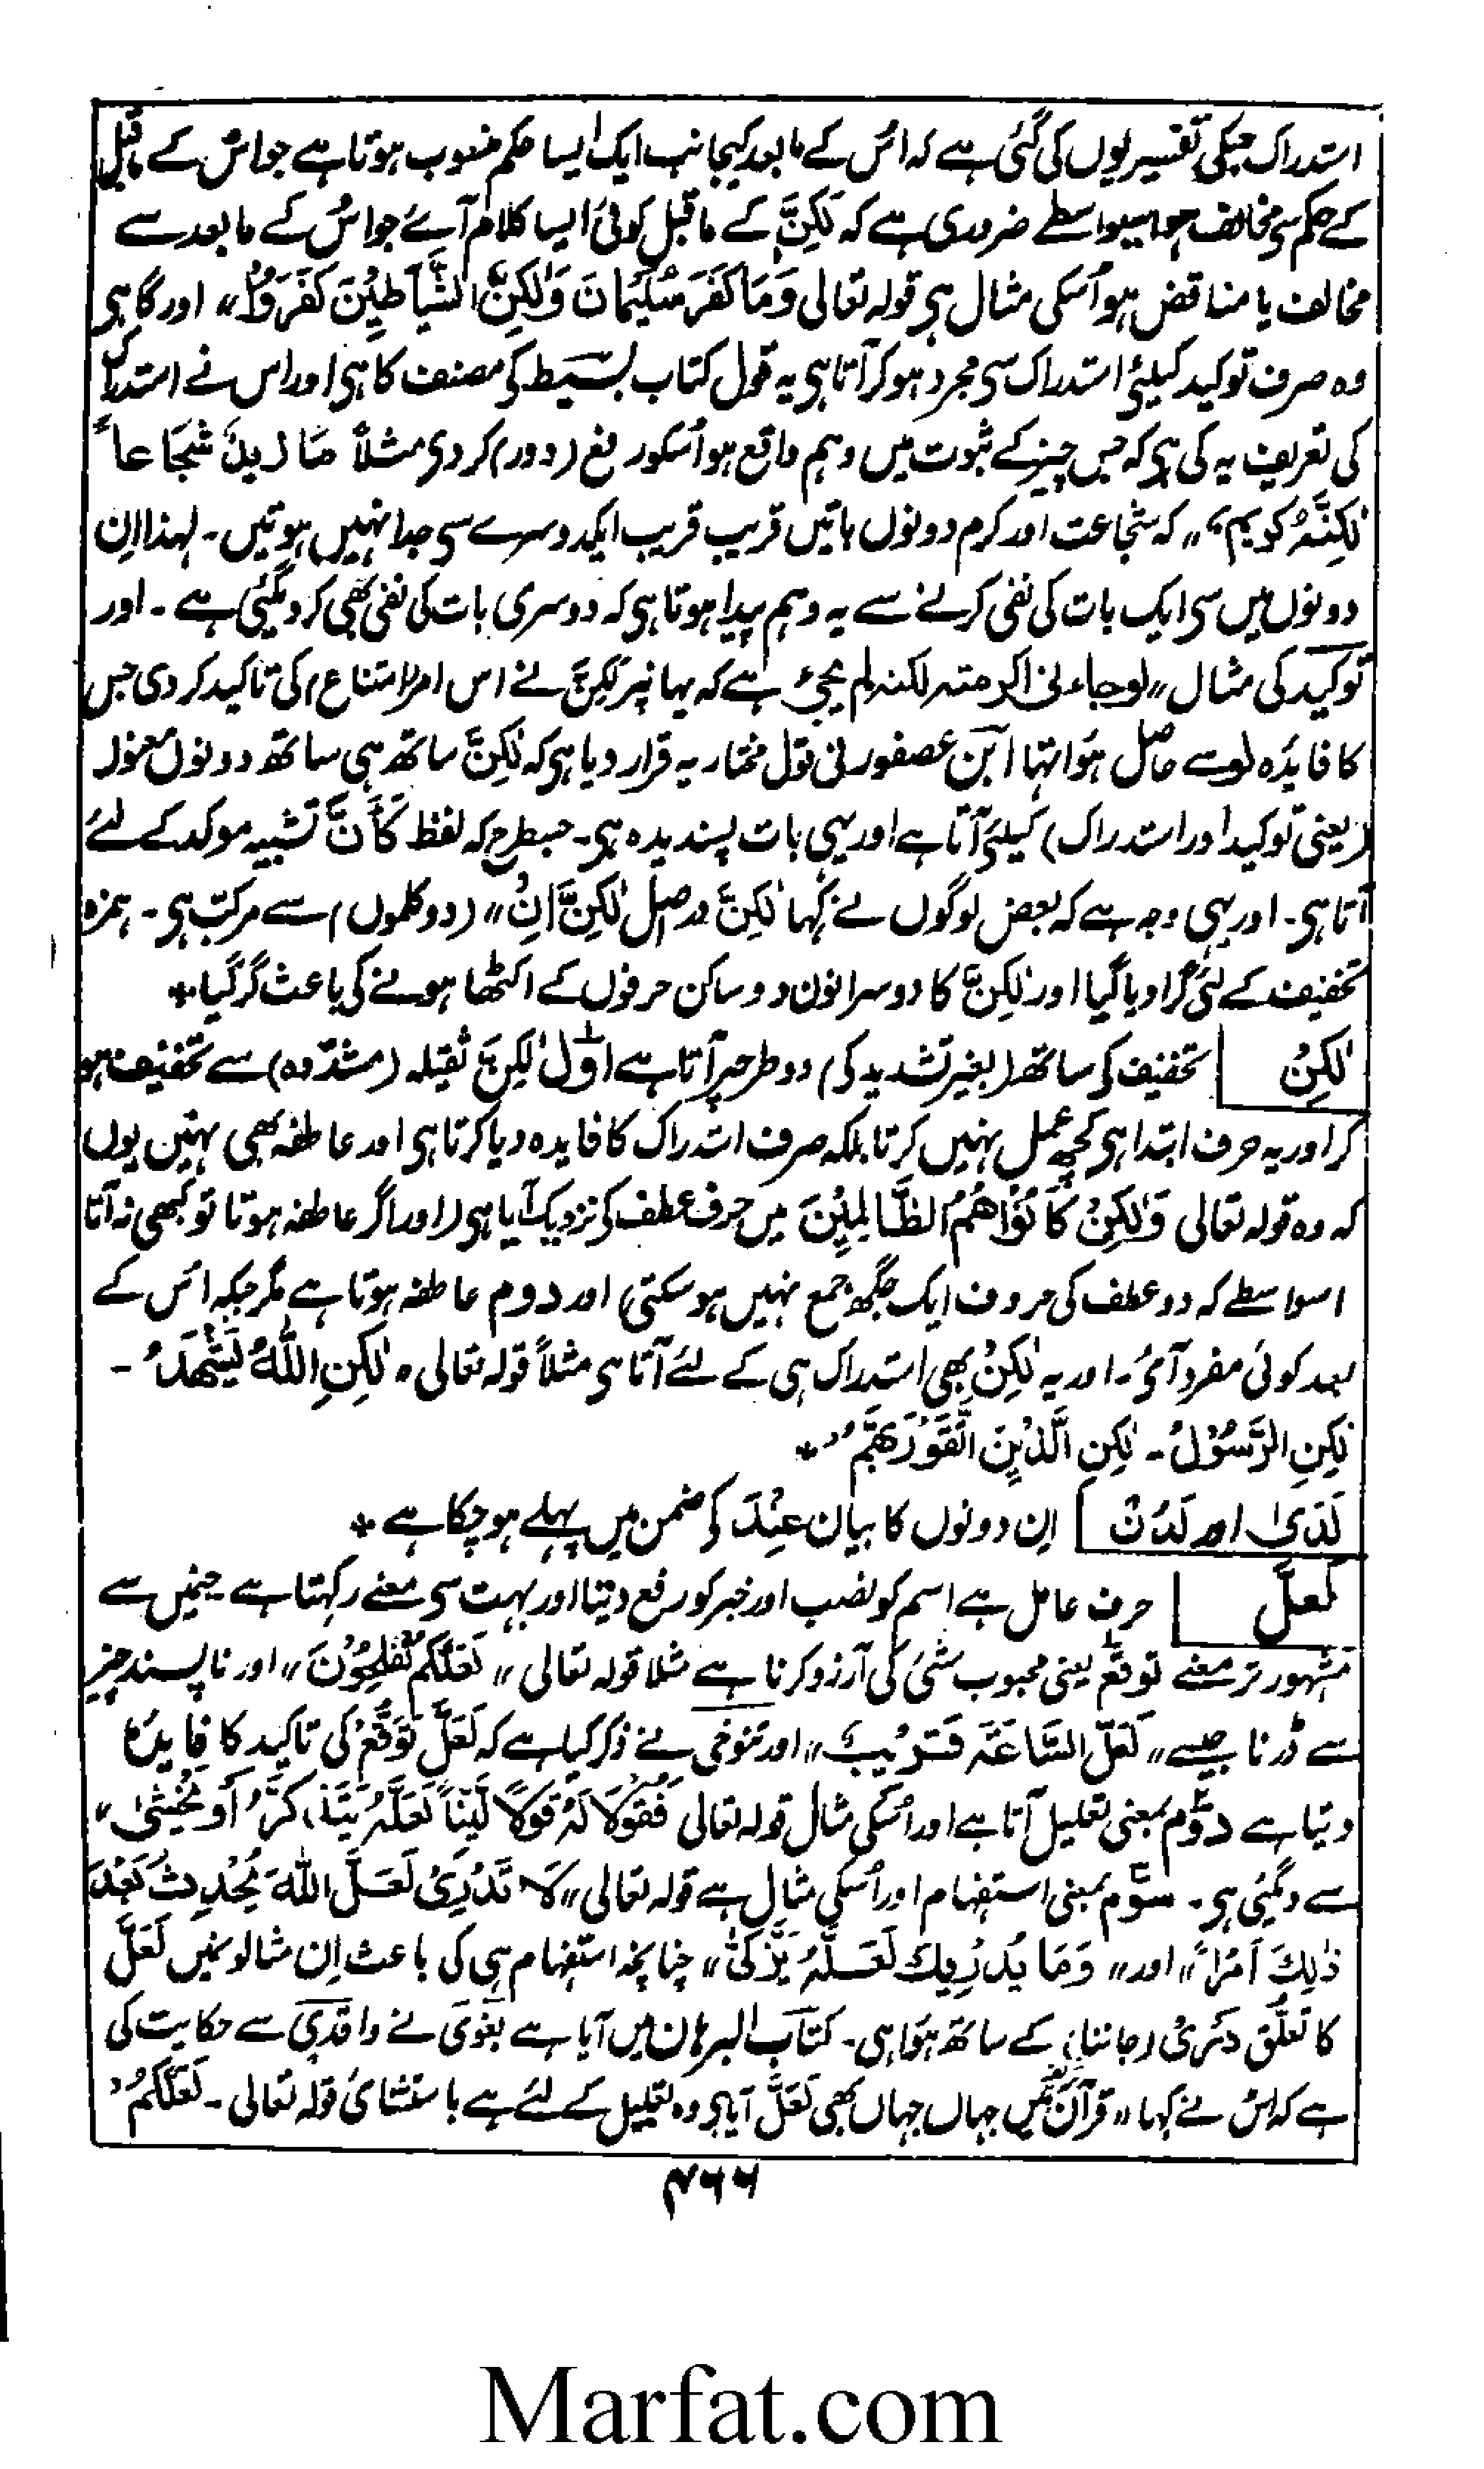 استدراک جسکی تفسیر یوں کی گئی ہے کہ اُس کے مابعد کیجانب ایک ایسا حکم منسوب ہوتا ہے جو اس کے ماقبل
کے حکم سی مخالف ہو اسیواسطے ضروری ہے کہ لٰکِنَّ کے ماقبل کوئی ایسا کلام آئے جو اس کے مابعد سے
مخالف یا مناقض ہو اُسکی مثال ہی قولہ تعالی وَمَا كَفَرَ سُلَیْمَانَ وَلٰكِنَّ الشَّيَاطِيْنَ كَفَرَوْا" اور گاہی
وہ صرف توکید کیلئے استدراک سی مجرد ہوکر آتا ہی یہ قول کتاب بسیط کی مصنف کا ہی اور اس نے استدراک
کی تعریف یہ کی ہی کہ جس چیز کے ثبوت میں وہم واقع ہو اُسکو رفع (دور) کردی مثلاً مَا زيدٌ شُجَاعاً
لٰكِنَّهُ كریمٌ" کہ شجاعت اور کرم دونوں باتیں قریب قریب ایکدوسرے سی جدا نہیں ہوتیں۔ لہذا اِن
دونوں میں سی ایک بات کی نفی کرنے سے یہ وہم پیدا ہوتا ہی کہ دوسری بات کی نفی بھی کر دیگئی ہے۔ اور
توکید کی مثال "لوجاءنی اکرمتہ لکنہ لم یجیٔ ہے کہ یہانپر لٰکِنَّ نے اس امر (امتناع) کی تاکید کردی جس
کا فایدہ لو سے حاصل ہوا تہا ابن عصفور نی قول مختار یہ قرار دیا ہی کہ لٰکِنَّ ساتھ ہی ساتھ دونوں معنوں
(یعنی توکید اور استدراک) کیلئے آتا ہے اور یہی بات پسندیدہ ہی۔ جسطرح کہ لفظ كَأَنَّ تشبیہ موکد کے لئے
آتا ہی۔ اور یہی وجہ ہے کہ بعض لوگوں نے کہا لٰکِنَّ دراصل لٰکِنَّ اَنَّ" (دو کلموں) سے مرکب ہی۔ ہمزہ
تخفیف کے لئی گرا دیا گیا اور لٰکِنَّ کا دوسرا نون دو ساکن حرفوں کے اکٹھا ہونے کی باعث گر گیا٭
لٰکِنْ تخفیف کی ساتھ (بغیر تشدید کی) دو طرحپر آتا ہے اوّل لٰکِنَّ ثقیلہ (مشدّدہ) سے تخفیف ہو
کر اور یہ حرف ابتدا ہی کچھ عمل نہیں کرتا بلکہ صرف استدراک کا فایدہ دیا کرتا ہی اور عاطفہ بھی نہیں یوں
کہ وہ قولہ تعالی وَلٰكِنْ كَانُوْا هُمُ الظَّالِمِيْنَ میں حرف عطف کی نزدیک آیا ہی (اور اگر عاطفہ ہوتا تو کبھی نہ آتا
اسواسطے کہ دو عطف کی حروف ایک جگھ جمع نہیں ہوسکتی) اور دوم عاطفہ ہوتا ہے مگر جبکہ اس کے
بعد کوئی مفرد آئ۔ اور یہ لٰکِنْ بھی استدراک ہی کے لئے آتا ہی مثلاً قولہ تعالی "لٰكِنِ اللّٰهُ يَشْهَدُ۔
لٰكِنِ الرَّسُوْلُ۔ لٰكِنِ الَّذِيْنَ اتَّقَوْ رَبَّهُمْ"٭
لَدَیٰ اور لَدُنْ اِن دونوں کا بیان عِنْدَ کی ضمن میں پہلے ہو چکا ہے٭
لَعَلَّ حرف عامل ہے اسم کو نصب اور خبر کو رفع دیتا اور بہت سی معنے رکہتا ہے جنمیں سے
مشہور تر معنے توقع یعنی محبوب شئ کی آرزو کرنا ہے مثلا قولہ تعالی "لَعَلَّكُمْ تُفْلِحُوْنَ" اور ناپسند چیز
سے ڈرنا جیسے "لَعَلَّ السَّاعَةَ قَرِيْبٌ" اور تنوخی نے ذکر کیا ہے کہ لَعَلَّ تَوَقُّعْ کی تاکید کا فایدہ
دیتا ہے دوم بمعنی تعلیل آتا ہے اور اُسکی مثال قولہ تعالی فَقُوْلَا لَهُ قَوْلًا لَّيِّناً لَّعَلَّهُ يَتَذَكَّرُ أَوْ يَخْشٰى"
سے دیگئی ہی۔ سوّم بمعنی استفہام اور اُسکی مثال ہے قولہ تعالی "لَا تَدْرِيْ لَعَلَّ اللّٰهَ يُحْدِثُ بَعْدَ
ذٰلِكَ اَمْرًا" اور "وَمَا يُدْرِيْكَ لَعَلَّهُ يَزَّكّٰى" چنانچہ استفہام ہی کی باعث اِن مثالونمیں لَعَلَّ
کا تعلّق دَرْیٌ (جاننا) کے ساتھ ہوا ہی۔ کتاب البرہان میں آیا ہے بغوی نے واقدی سے حکایت کی
ہے کہ اس نے کہا "قرآن میں جہاں جہاں بھی لَعَلَّ آیا ہی وہ تعلیل کے لئے ہے باستثنائ قولہ تعالی۔ لَعَلَّكُمْ"
۴۶۶
Marfat.com